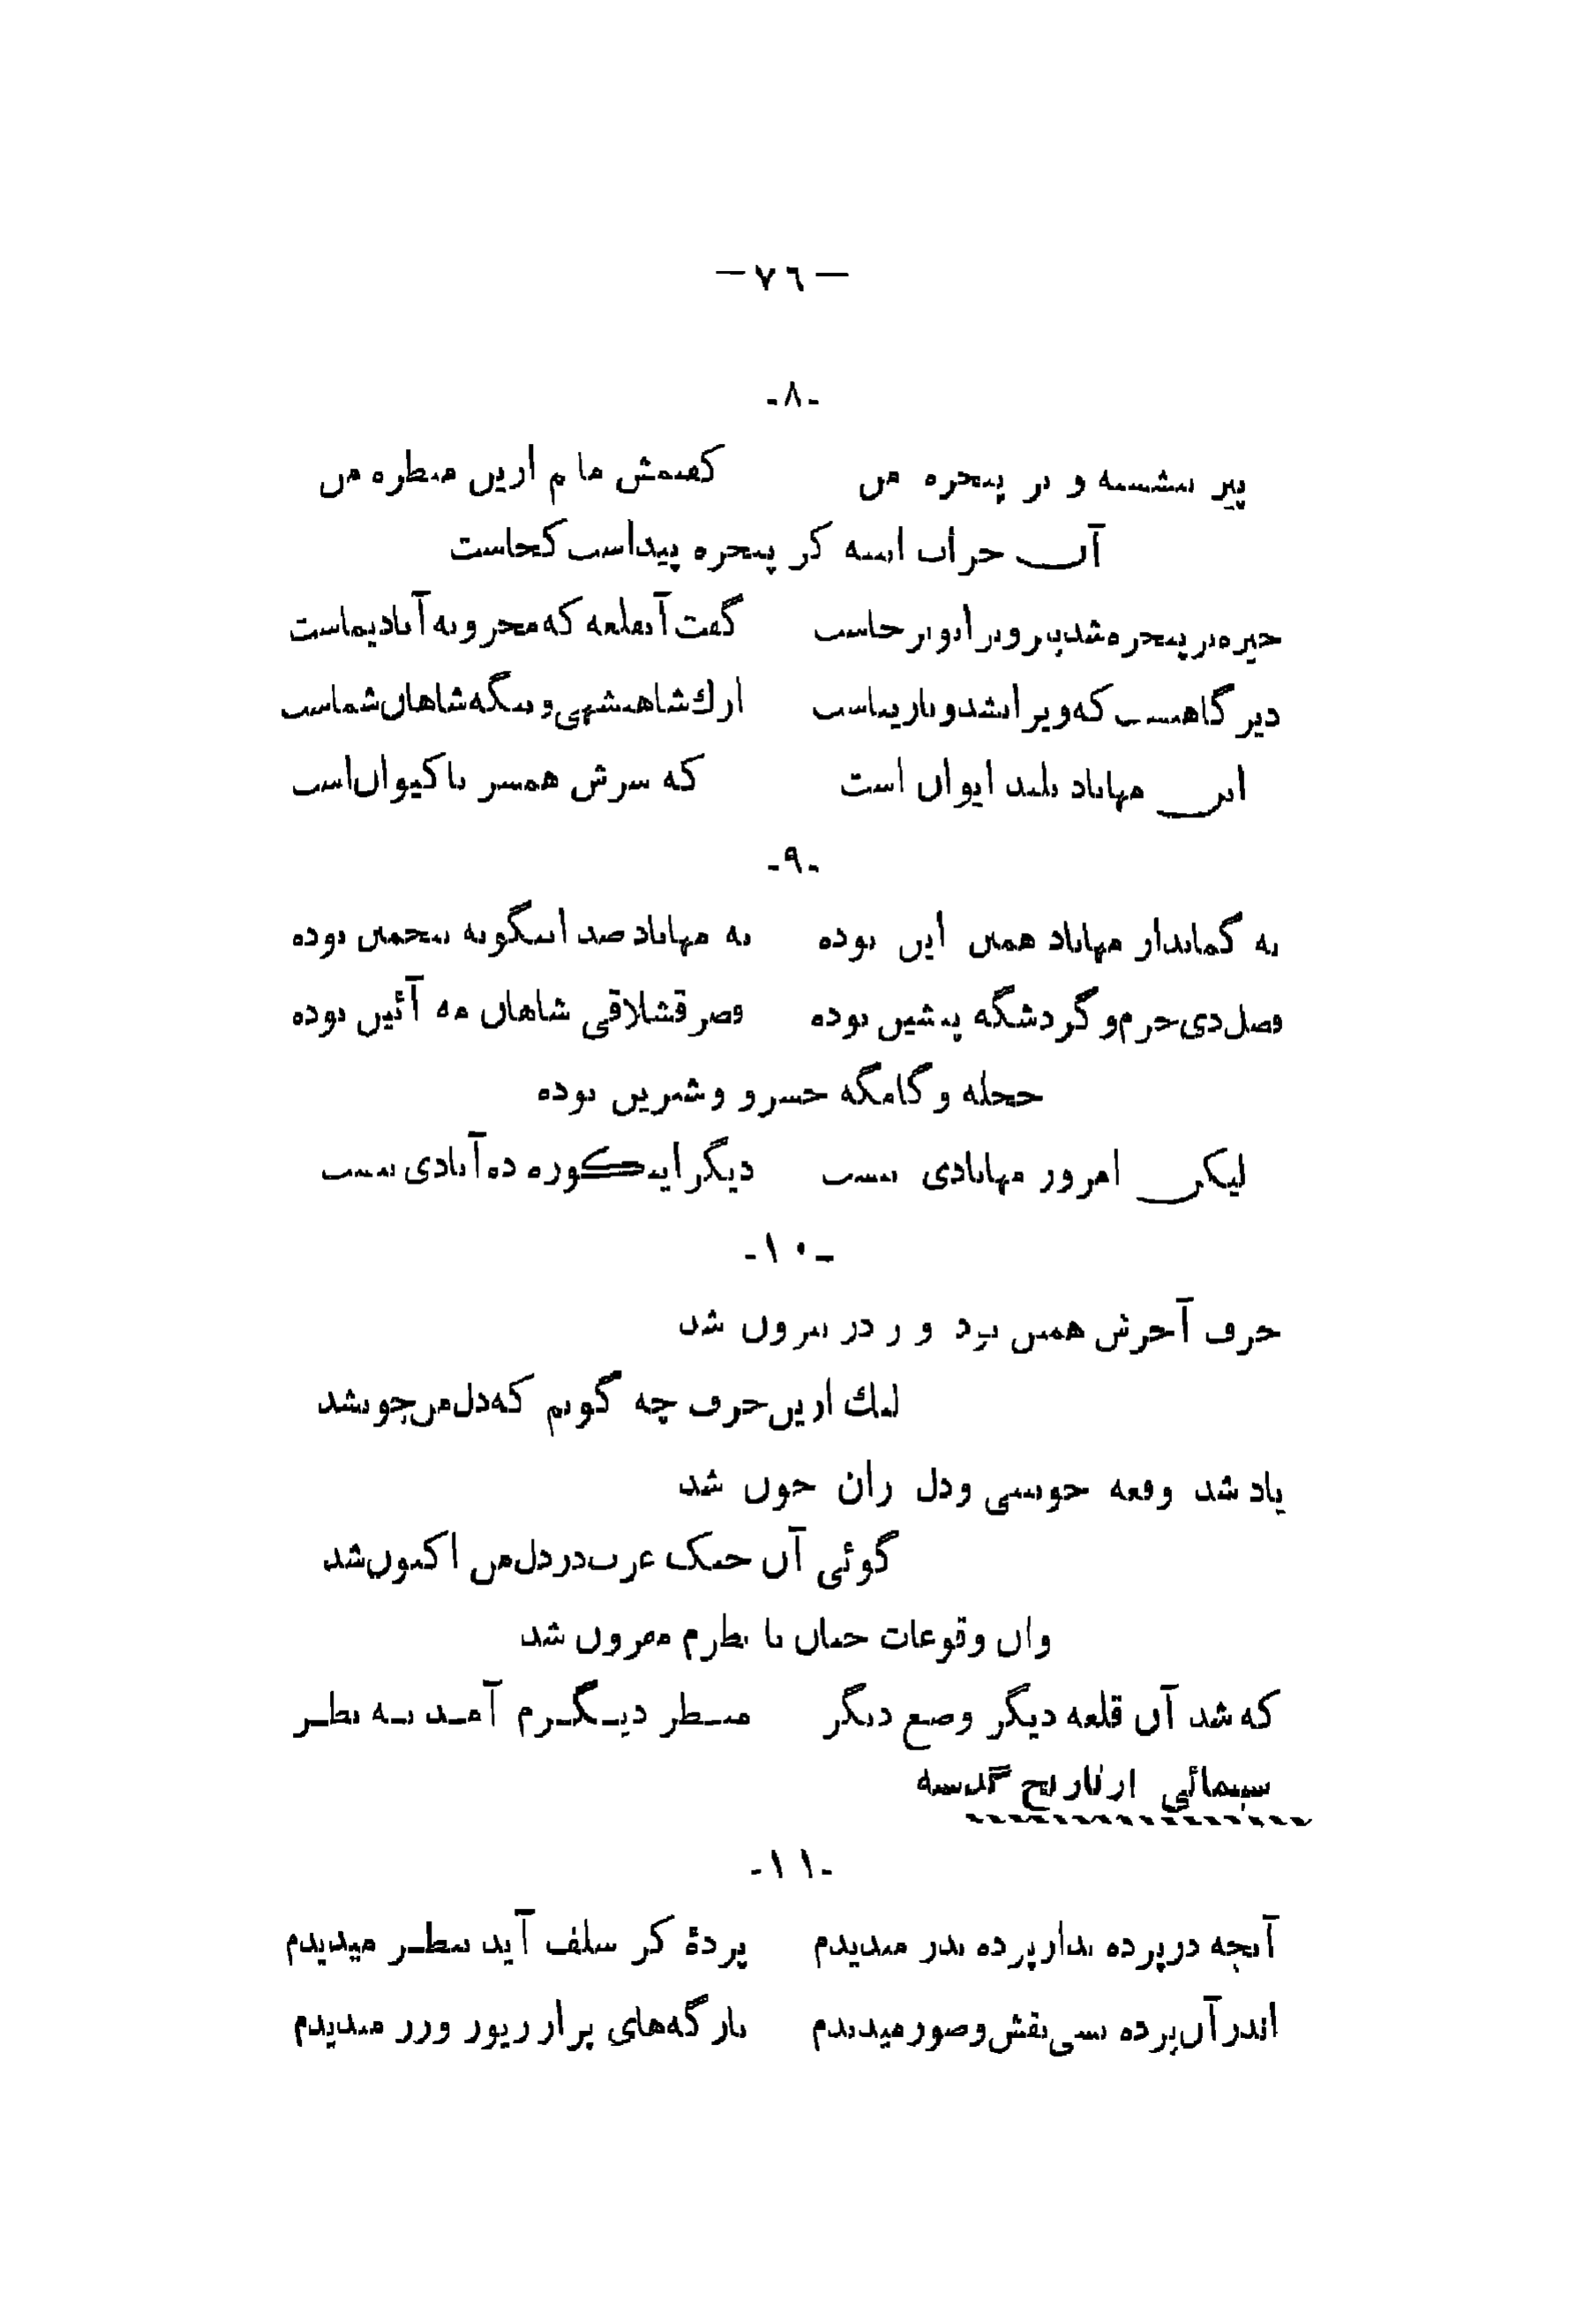 —٧٦—
-٨-
پیر بنشسته و بر پنجره من گفتمش مام ازین منظره من
آن خراب ابنیه کز پنجره پیداست کجاست
خیره بر پنجره شد پیر و بزانو برخاست گفت آنقلعه که مخروبه آبادیماست
دیرگاهیست که ویرانشد و باریناست ارك شاهنشهی و بنگه شاهان شماست
این مهاباد بلند ایوان است که سرش همسر با کیوان است
-٩-
به گماندار مهاباد همین این بوده نه مهاباد صد اینگونه بتخمین بوده
فصل دی خرم و گردشگه پیشین بوده قصر قشلاقی شاهان مه آئین بوده
حجله و گامگه خسرو و شیرین بوده
لیکن امروز مهابادی نیست دیگر اینکوره ده آبادی نیست
-١٠-
حرف آخرش همین بود و ز در بیرون شد
لیك ازین حرف چه گویم که دل من چونشد
یاد شد وقعه خونینی و دل زان خون شد
گوئی آن جنگ عرب در دل من اکنون شد
وان وقوعات چنان با نظرم مقرون شد
که شد آن قلعه دیگر وضع دیگر منظر دیگرم آمد به نظر
سینمائی از تاریخ گذشته
-١١-
آنچه در پرده بد از پرده بدر میدیدم پردهٔ کز سلف آید بنظر میدیدم
اندر آن پرده بسی نقش و صور میدیدم بارگه‌های پر از زیور و زر میدیدم